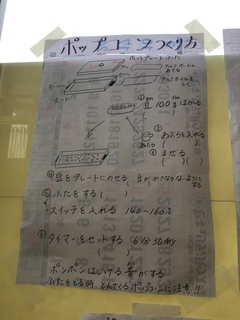 ポップコーンつくり方
ホットプレートのふた
プレート
① 豆 100gはかる
② あぶらを入れる
あぶら
③ まぜる
④ 豆をプレートにのせる 豆がかさならないようにする
⑤ ふたをする
スイッチを入れる 140~160℃
⑥ タイマーをセットする 6分30秒
ポンポンはじける音がする
ふたをとる時、とんでくるポップコーンに注意!!